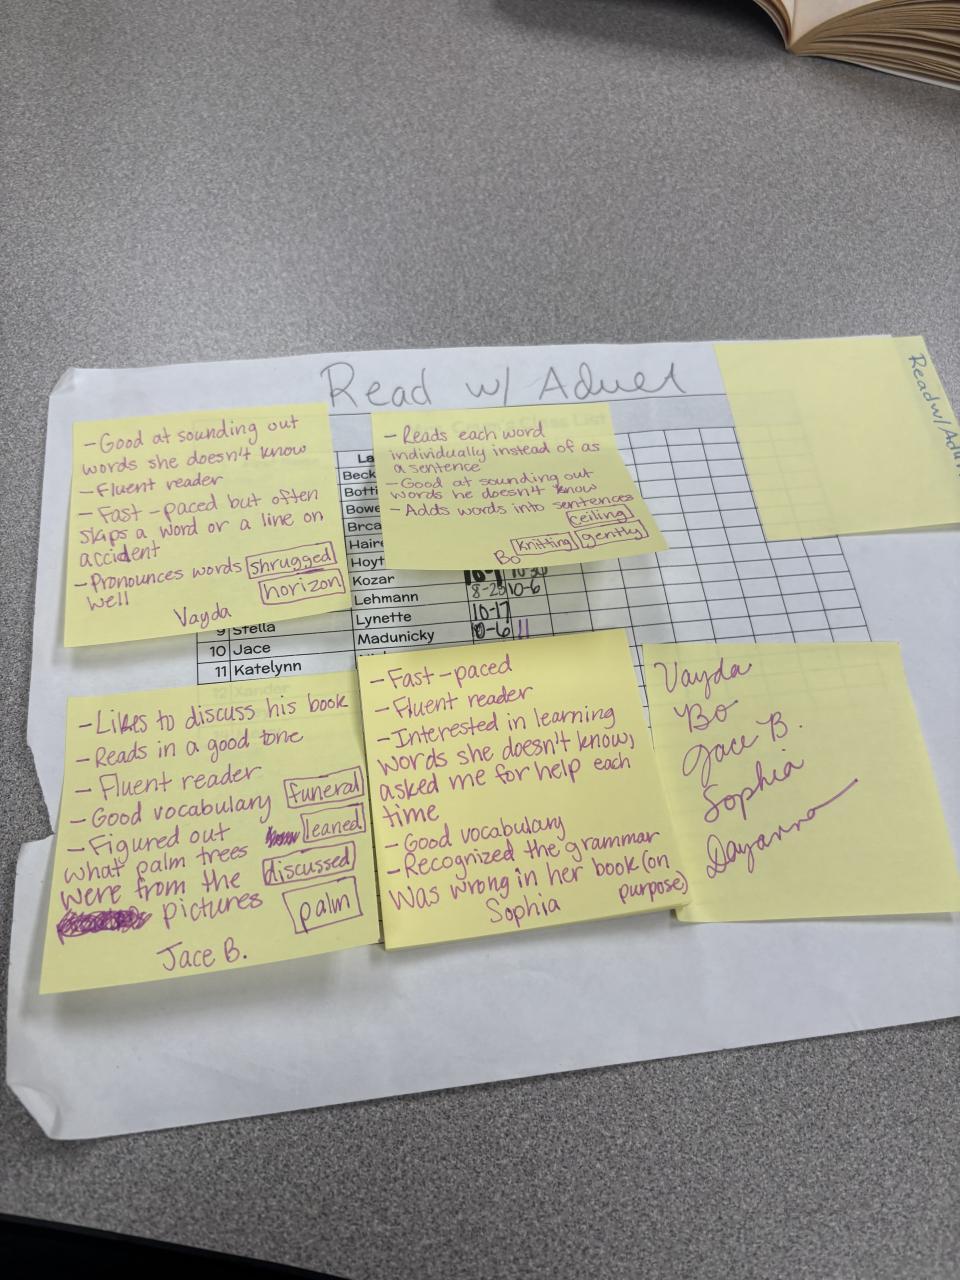 Read w/ Adult
Read w/
- Good at sounding out
words she doesn't know
- Fluent reader
- Fast-paced but often
skips a word or a line on
accident
- Pronounces words
well
shrugged
horizon
Vayda
- Reads each word
individually instead of as
a sentence
- Good at sounding out
words he doesn't know
- Adds words into sentences
ceiling
knitting gently
Bo
La
Beck
Botti
Bowe
Brca
Haire
Hoyt
Kozar
Lehmann 8-25 10-6
Lynette 10-17
9 Stella Madunicky 0-6 11
10 Jace
11 Katelynn
12 Xander
- Likes to discuss his book
- Reads in a good tone
- Fluent reader
- Good vocabulary
- Figured out
what palm trees
were from the
pictures
funeral
leaned
discussed
palm
Jace B.
- Fast-paced
- Fluent reader
- Interested in learning
words she doesn't know,
asked me for help each
time
- Good vocabulary
- Recognized the grammar
was wrong in her book (on
purpose)
Sophia
Vayda
Bo
Jace B.
Sophia
Dayanna